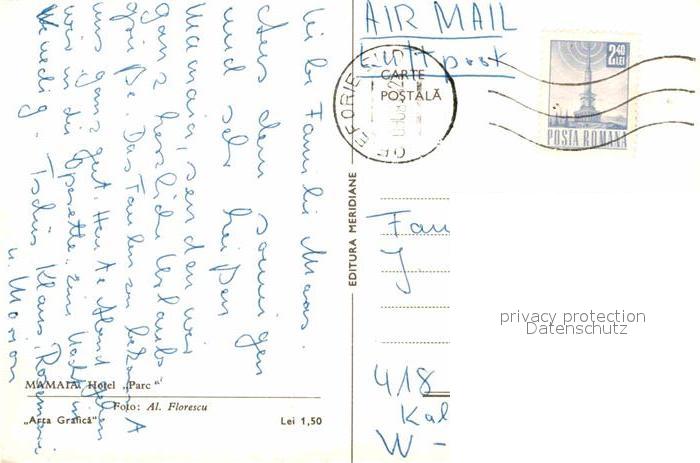 Liebe Familie Maas.
Aus dem sonnigen
und sehr heißen
Mamaia, senden wir
ganz herzliche Urlaubs
grüße. Das Faulenzen
uns ganz gut. Heute Abend gehen
wir in die Operette: "eine Nacht in
Venedig". Tschüs Klaus,
u. Marion
MAMAIA Hotel „Parc"
Foto: Al. Florescu
„Arta Grafică"
Lei 1,50
EDITURA MERIDIANE
AIR MAIL
Luftpost
CARTE
POSTALĂ
EFORIE SUD
2,40
LEI
POSTA ROMANA
Fam
J
418
Kal
W -
privacy protection
Datenschutz